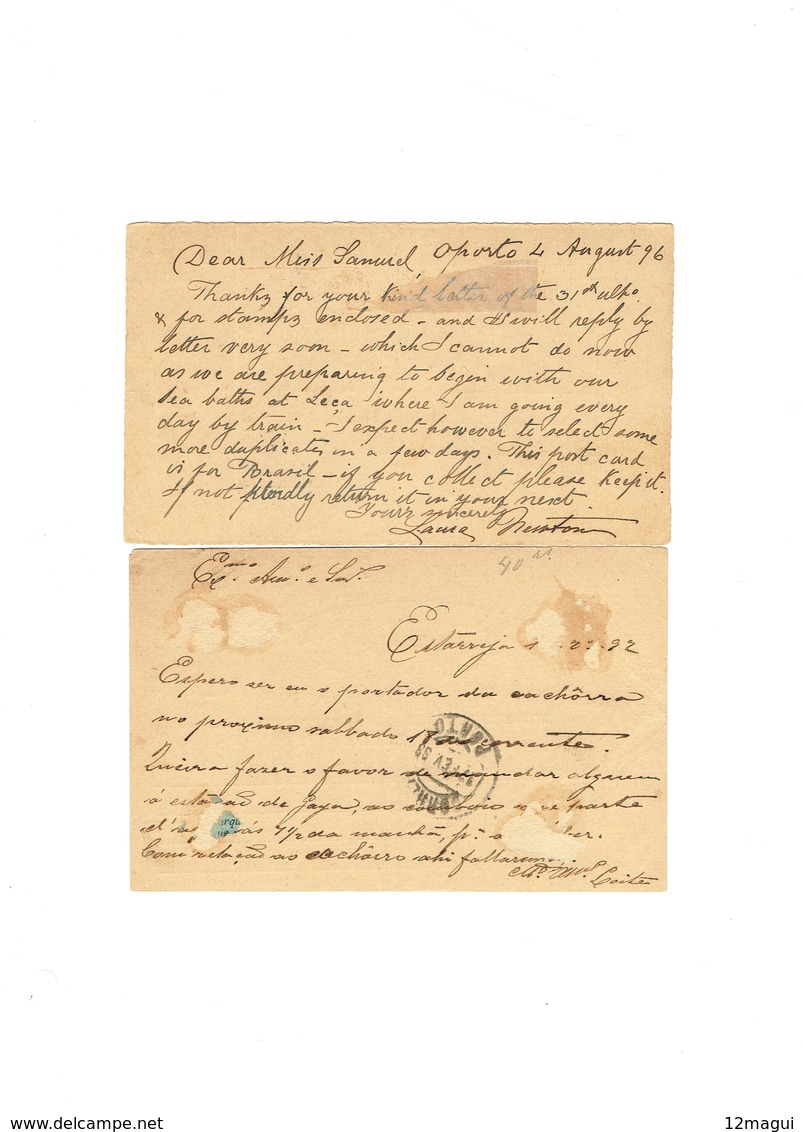 Dear Miss Samuel, Oporto 4 August 96
Thanks for your kind letter of the 31st ulto
& for stamps enclosed - and I will reply by
letter very soon - which I cannot do now
as we are preparing to begin with our
sea baths at Leça where I am going every
day by train - I expect however to select some
more duplicates in a few days. This post card
is for Brasil - if you collect please keep it.
If not kindly return it in your next.
Yours sincerely
Laura Newton
40 rs
Exmo Amo e Snr.
Estarreja
Espero ser eu o portador da cachôrra
no proximo sabbado 18 do corrente.
Queira fazer o favor de mandar alguem
á estação de Gaya, ao comboio que parte
d'aqui ás 7 1/2 da manhã,
Com relação ao cachôrro ahi fallaremos.
Leite
PORTO
FEV 93
12magui